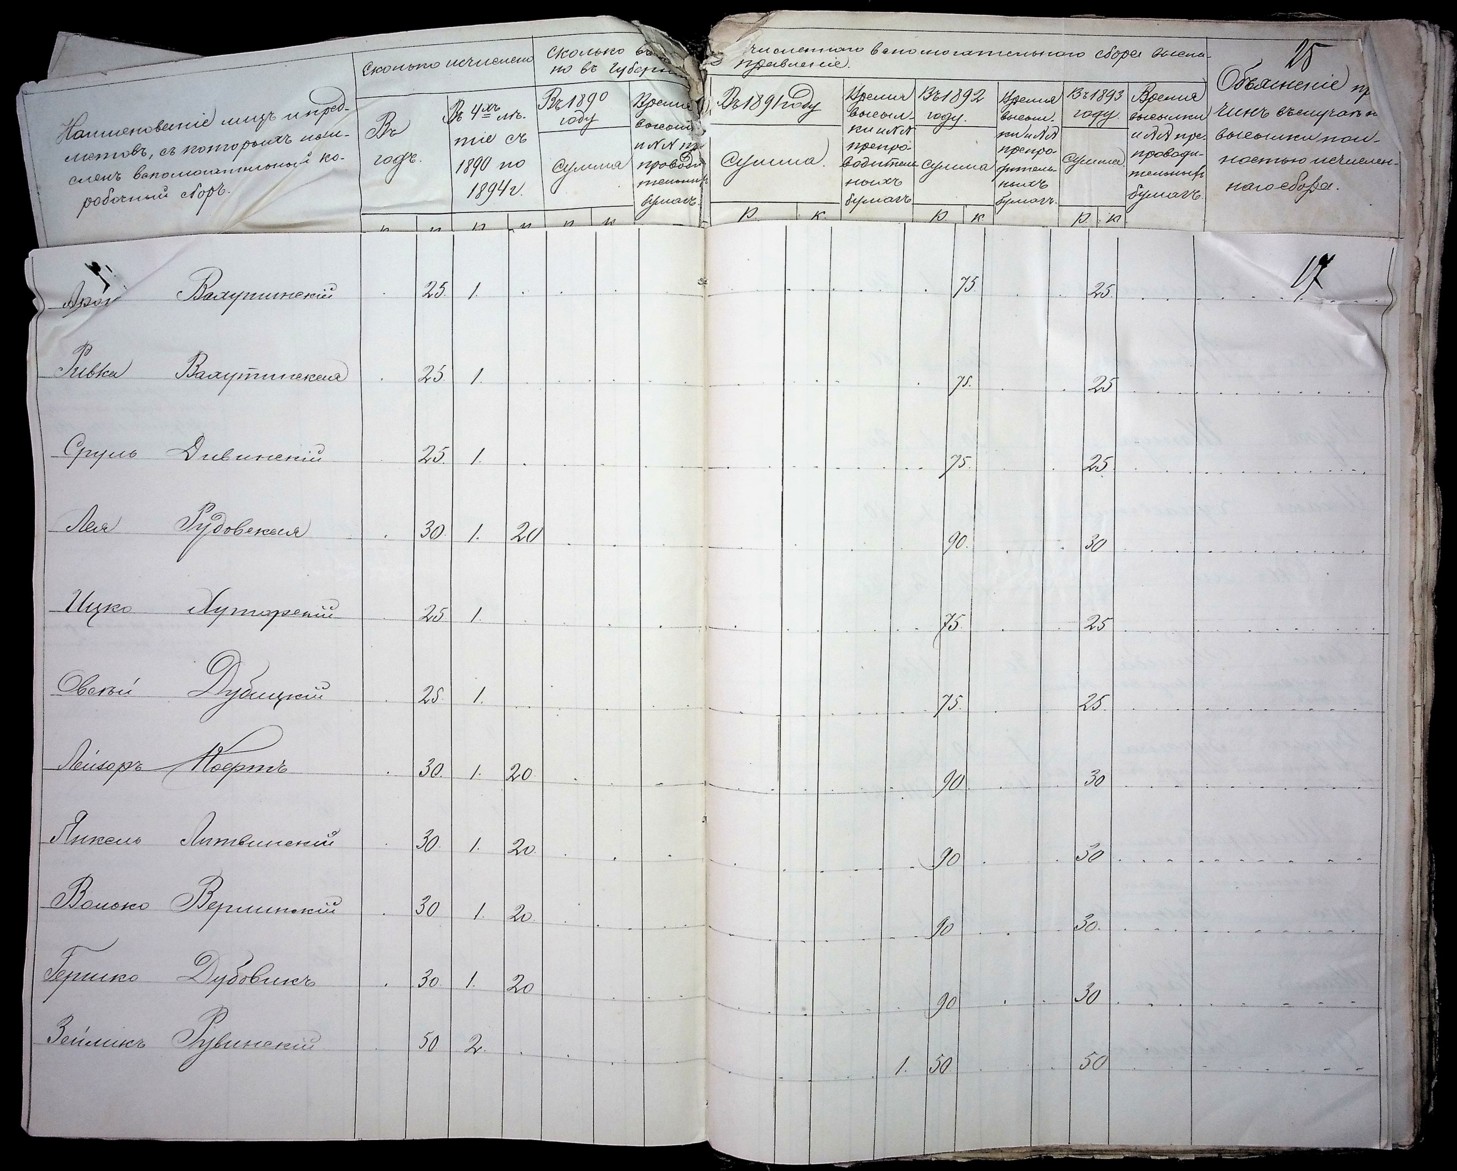 25
Наименованіе лицъ и пред-
метовъ, съ которыхъ исчи-
сленъ вспомогательный ко-
робочный сборъ.
Сколько исчислено
Въ
годъ.
Въ 4хъ лѣ-
тіе съ
1890 по
1894 г.
Сколько въ
но въ Губерн
Въ 1890
году
Сумма
Время
высыл
и №№ пр
провод
тельных
бумагъ.
численнаго вспомогательнаго сбора высла-
правленіе.
Въ 1891 году
Сумма.
Время
высыл-
ки и №№
препро-
водитель-
ныхъ
бумагъ
Въ 1892
году.
Сумма
Время
высыл-
ки и №№
препро-
ныхъ
бумагъ.
Въ 1893
году
Сумма
Время
высылки
и №№ пре-
проводи-
тельных
бумагъ.
Объясненіе пр
чинъ въ случаѣ н
высылки пол-
ностью исчислен-
наго сбора.
р к р к р к
17
Валутинскій . 25 1. 75 25
Ривка Валутинская . 25 1. 75. 25
Сруль Дивинскій . 25 1. 75. 25
Лея Рудовская . 30 1. 20 90. 30
Ицко Хуторскій . 25 1. 75 25
Овсѣй Дубицкій . 25 1. 75 25
Лейзеръ . 30 1. 20 90 30
Янкель Литвинскій . 30 1. 20 90 30
Волько Верлинскій . 30 1. 20 90 30.
Гершко Дубовикъ . 30 1. 20 90 30
Зейликъ Рувинскій 50 2. 1. 50 50